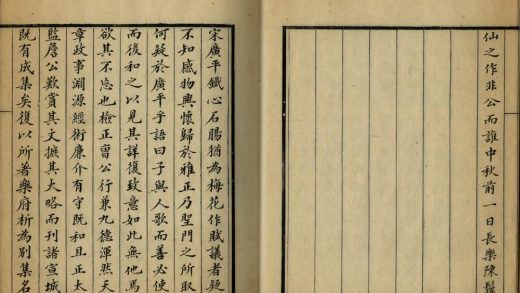 仙之作非公而誰中秋前一日長樂陳
宋廣平鐵心石腸猶為梅花作賦議者疑
不知感物興懷歸於雅正乃聖門之所取
何疑於廣平乎語曰子與人歌而善必使
而後和之以見其詳復致意如此無他焉
欲其不忘也檢正曹公行兼九德渾然天
章政事淵源經術廉介有守既和且正太
監詹公歎賞其文摭其大略而刊諸宣城
既有成集矣復以所著樂府析為別集名